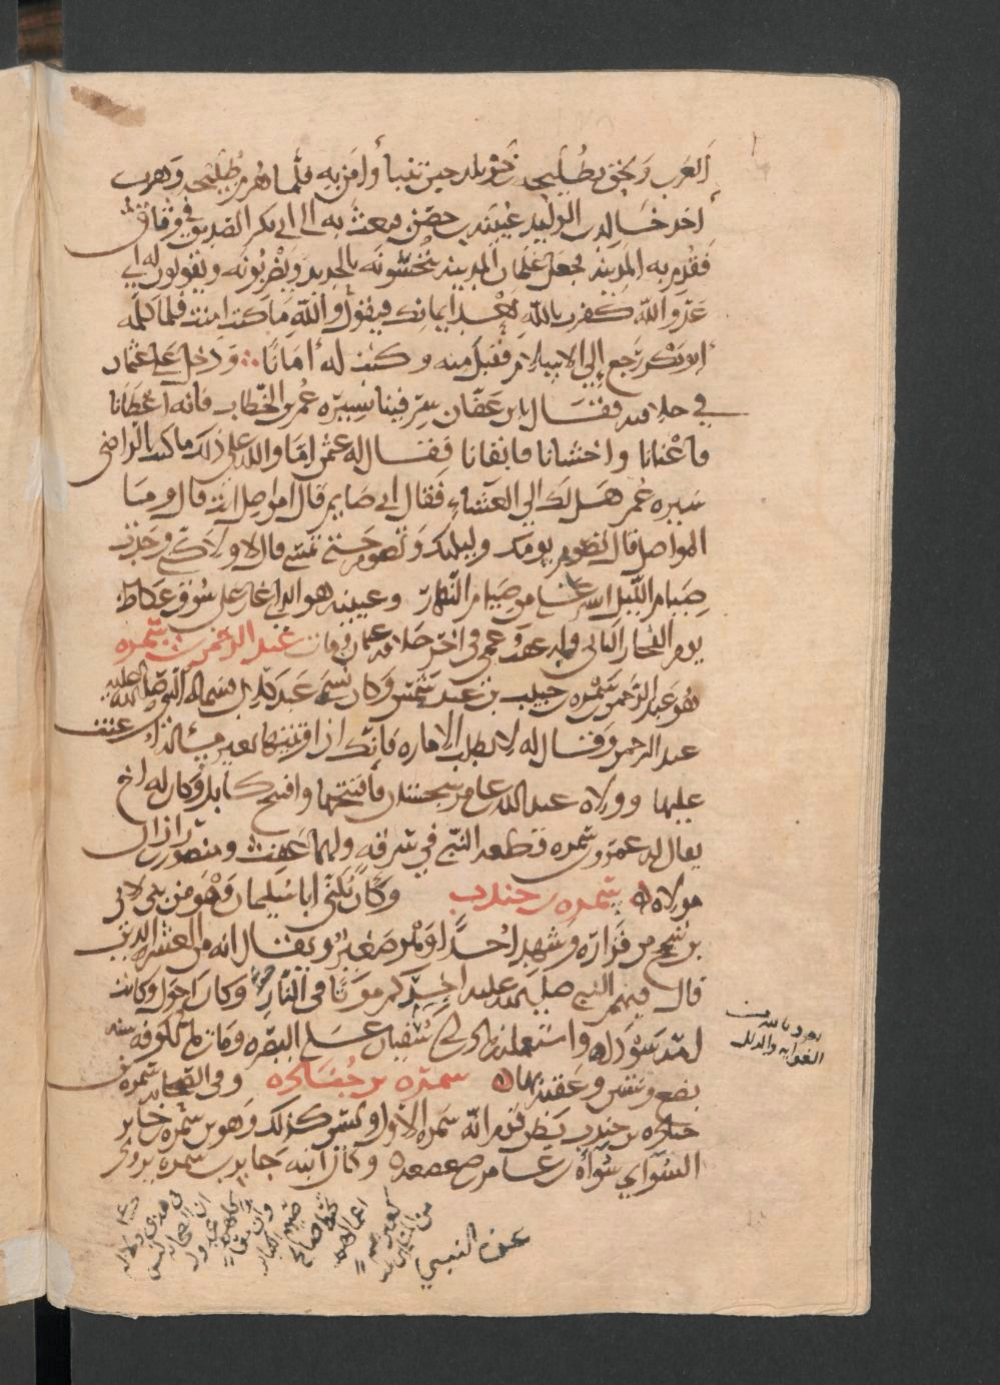 العرب ولحق بطليحة بن خويلد حين تنبأ وامن به فلما هزم طليحة وهرب
اخذ خالد بن الوليد عيينة بن حصن فبعث به الى ابي بكر الصديق في وثاق
فقدم به المدينة فجعل غلمان المدينة ينخسونه بالحديد ويضربونه ويقولون له اي
عدو الله كفرت بالله بعد ايمانك فيقول والله ما كنت امنت فلما كلمه
ابو بكر رجع إلى الاسلام فقبل منه وكتب له أمانا ودخل على عثمان
في خلافته فقال يابن عفان سر فينا سيرة عمر بن الخطاب فانه اعطانا
فاغنانا واخشانا فاتقانا فقال له عثمن اما والله على ذلك ما كنت بالراضي
سيرة عمر هل لك الى العشاء فقال اني صايم قال امواصل انت قال وما
المواصل قال تصوم يومك وليلتك وتصوم حتى تمسي قال لا ولكني وجدت
صيام الليل ايسر علي من صيام النهار وعيينة هو الذي اغار على سوق عكاظ
يوم الفجار الثاني وله عقب وعمي في اخر خلافة عثمان ومات عبد الرحمن بن سمرة
هو عبد الرحمن بن سمرة بن حبيب بن عبد شمس وكان يسمى عبد كلال فسماه النبي صلى الله عليه
عبد الرحمن وقال له لا تطلب الامارة فانك ان اوتيتها بغير مسألة اعنت
عليها وولاه عبد الله بن عامر سجستان فافتتحها وافتتح كابل وكان له اخ
يقال له عمرو بن سمرة قطعه النبي في سرقة ولهما عقب ومنصور بن زاذان
مولاه سمرة بن جندب وكان يكنى أبا سليمان وهو من بني لاي
بن شمخ من فزارة وشهد احدا وهو صغير ويقال انه من العشرة الذين
قال فيهم النبي صلى الله عليه اخركم موتا في النار وكان احول وكانت
امه سوداء واستعمله زياد بن ابي سفيان على البصرة ومات بالكوفة سنة
بضع وستين وعقبه بها سمرة بن جنادة وفي الصحابة سمرة بن
جنادة بن جندب يظن قوم انه سمرة الاول وليس كذلك وهو من سمرة جابر
السوائي سواة بن عامر بن صعصعة وكان ابنه جابر بن سمرة يروي
عن النبي